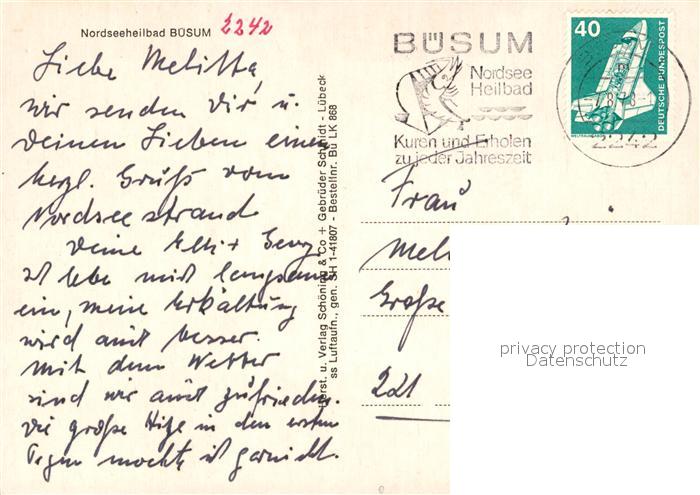 Nordseeheilbad BÜSUM 2242
Liebe Melitta,
wir senden Dir u.
Deinen Lieben einen
herzl. Gruß vom
Nordseestrand
Deine Elli + Georg
ist lebe mich langsam
ein, meine Erkältung
wird auch besser.
Mit dem Wetter
sind wir auch zufrieden.
Die große Hitze in den ersten
Tagen mochte ich garnicht.
Herst. u. Verlag Schöning & Co + Gebrüder Schmidt - Lübeck
ss Luftaufn., gen. SH 1-41807 - Bestellnr. Bü LK 868
BÜSUM
Nordsee
Heilbad
Kuren und Erholen
zu jeder Jahreszeit
40
DEUTSCHE BUNDESPOST
2242
Frau
Große
221
privacy protection
Datenschutz